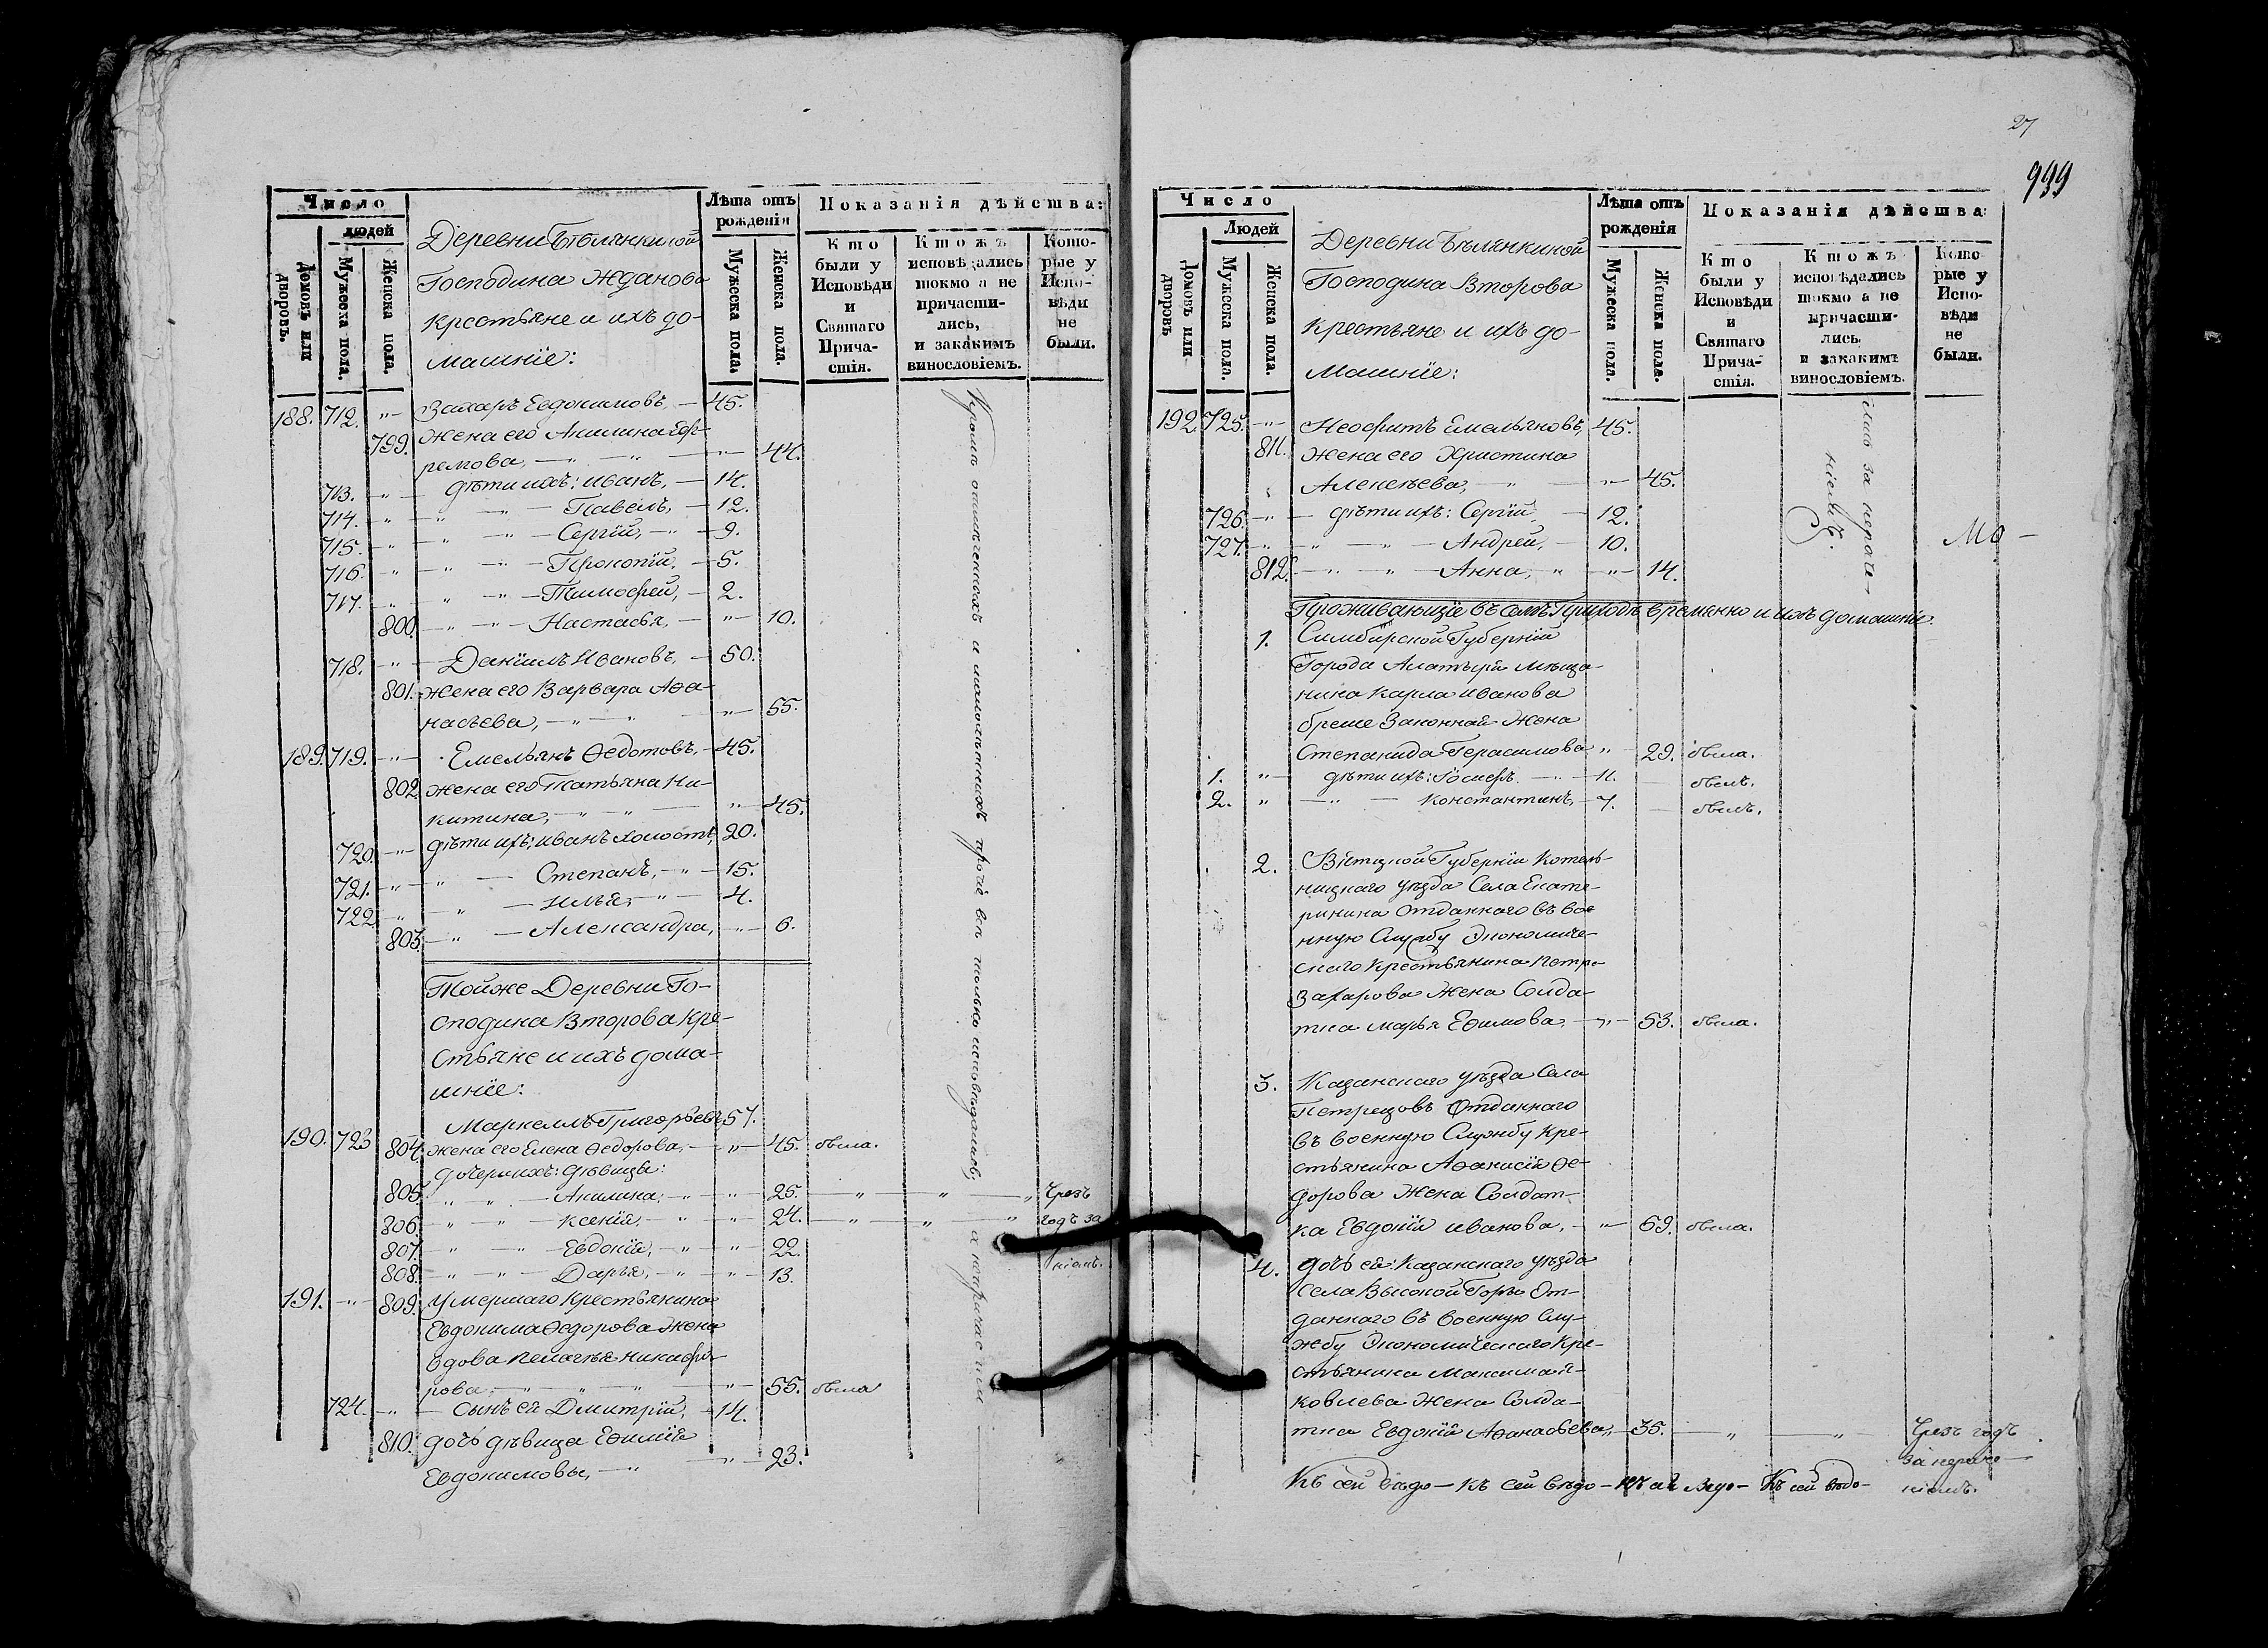 Число
людей
Домовъ или дворовъ.
Мужеска пола.
Женска пола.
Деревни Бѣлянкиной
Господина Жданова
крестьяне и ихъ до-
машнїе:
Лѣта отъ рожденїя
Мужеска пола.
Женска пола.
Показанїя дѣйства:
Кто были у Исповѣди и Святаго Прича-стїя.
Кто жъ исповѣдались токмо а не причасти-лись, и закакимъ винословїемъ.
Кото-рые у Испо-вѣди не были.
188. 712. "— Захаръ Евдокимовъ, — 45.
799. жена его Акилина Еф-
ремова, —"—"— 44.
713. "— дѣти ихъ: Иванъ, — 14.
714. —"—"— Павелъ, — 12.
715. —"—"— Сергїй, —"— 9.
716. —"—"— Прокопїй, — 5.
717. —"—"— Тимофей, — 2.
800. —"—"— Настасья, —"— 10.
718. —"— Данїилъ Ивановъ, — 50.
801. жена его Варвара Аѳа-
насьева, —"—"— 55.
189. 719. —"— Емельянъ Ѳедотовъ, — 45.
802. жена его Татьяна Ни-
китина, —"—"— 45.
720. —"— дѣти ихъ: Иванъ холостъ, 20.
721. —"— Степанъ, —"— 15.
722. —"— Илья, —"— 4.
803. —"— Александра, —"— 6.
Тойже Деревни Го-
сподина Второва кре-
стьяне и ихъ дома-
шнїе:
190. 723 Маркеллъ Григорьевъ, 57.
804. жена его Елена Ѳедорова, —"— 45. была.
дочери ихъ: дѣвицы:
805. —"—"— Акилина, —"—"— 25. —"—"—" Чрезъ
806. —"—"— Ксенїя, —"—"— 24. —"—"—" годъ за
807. —"—"— Евдокїя, —"—"— 22.
808. —"—"— Дарья, —"—"— 13. нїемъ.
191. —"— 809. Умершаго крестьянина
Евдокима Ѳедорова жена
вдова Пелагѣя Никифо-
рова, —"—"—"— 55. была
724. —"— сынъ ея Дмитрїй, — 14.
810. дочь дѣвица Еѳимїя
Евдокимовы, —"—"— 23.
Кромѣ отмѣченныхъ и малолѣтнихъ прочїе всѣ только исповѣдались, а непричасти
27
999
Число
Людей
Домовъ или дворовъ
Мужеска пола.
Женска пола.
Деревни Бѣлянкиной
Господина Второва
крестьяне и ихъ до-
машнїе:
Лѣта отъ рожденїя
Мужеска пола.
Женска пола.
Показанїя дѣйства:
Кто были у Исповѣди и Святаго Прича-стїя.
Кто жъ исповѣдались токмо а не причасти-лись, и закакимъ винословїемъ.
Кото-рые у Испо-вѣди не были.
192. 725. —"— Неофитъ Емельяновъ, 45.
811. жена его Христина
Алексѣева, —"—"— 45.
726. —"— дѣти ихъ: Сергїй — 12.
727. —"—"—"— Андрей, — 10.
812. —"—"— Анна, "—"— 14.
лись за нераче-
нїемъ.
МО —
Проживающїе въ семъ Приходѣ временно и ихъ домашнїе
1. Симбирской Губернїи
Города Алатыря мѣща-
нина Карла Иванова
бреше Законная жена
Степанида Герасимова " 29. была.
1. "— дѣти ихъ: Їосифъ —"— 11. — былъ.
2. " —"— Константинъ, — 7. — былъ.
2. Вятцкой Губернїи Котель-
ницкаго уѣзда Села Екате-
ринина Отданнаго въ вое
нную Службу Экономиче-
скаго Крестьянина Петра
Захарова жена Солда-
тка Марья Еѳимова, —"— 53. была.
3. Казанскаго уѣзда Села
Петрецовъ Отданнаго
въ военную Службу Кре-
стьянина Аѳанасїя Ѳе-
дорова жена Солдат-
ка Евдокїя Иванова, —"— 69. была.
4. дочь ея: Казанскаго уѣзда
Села Высокой Горы От-
даннаго въ военную Слу-
жбу Экономическаго Кре-
стьянина Максима Я-
ковлева жена Солда-
тка Евдокїя Аѳанасьева, — 35. —"—"— Чрезъ годъ
за нераче-
нїемъ.
Къ сей вѣдо — Къ сей вѣдо — Къ сей вѣдо — Къ сей вѣдо-